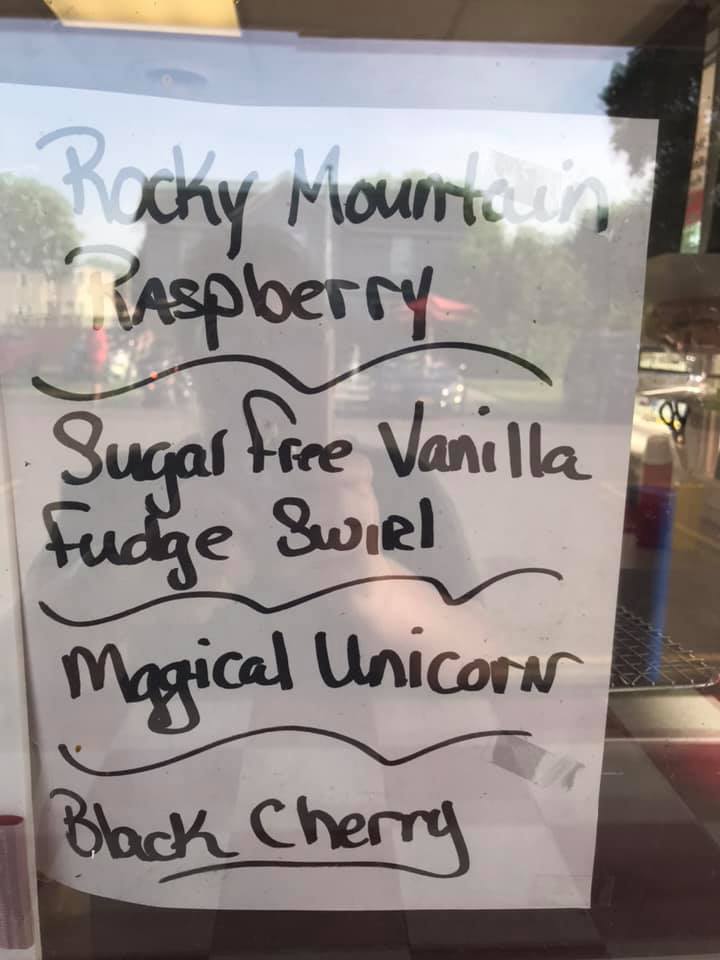 Rocky Mountain
Raspberry
Sugar free Vanilla
Fudge Swirl
Magical Unicorn
Black Cherry